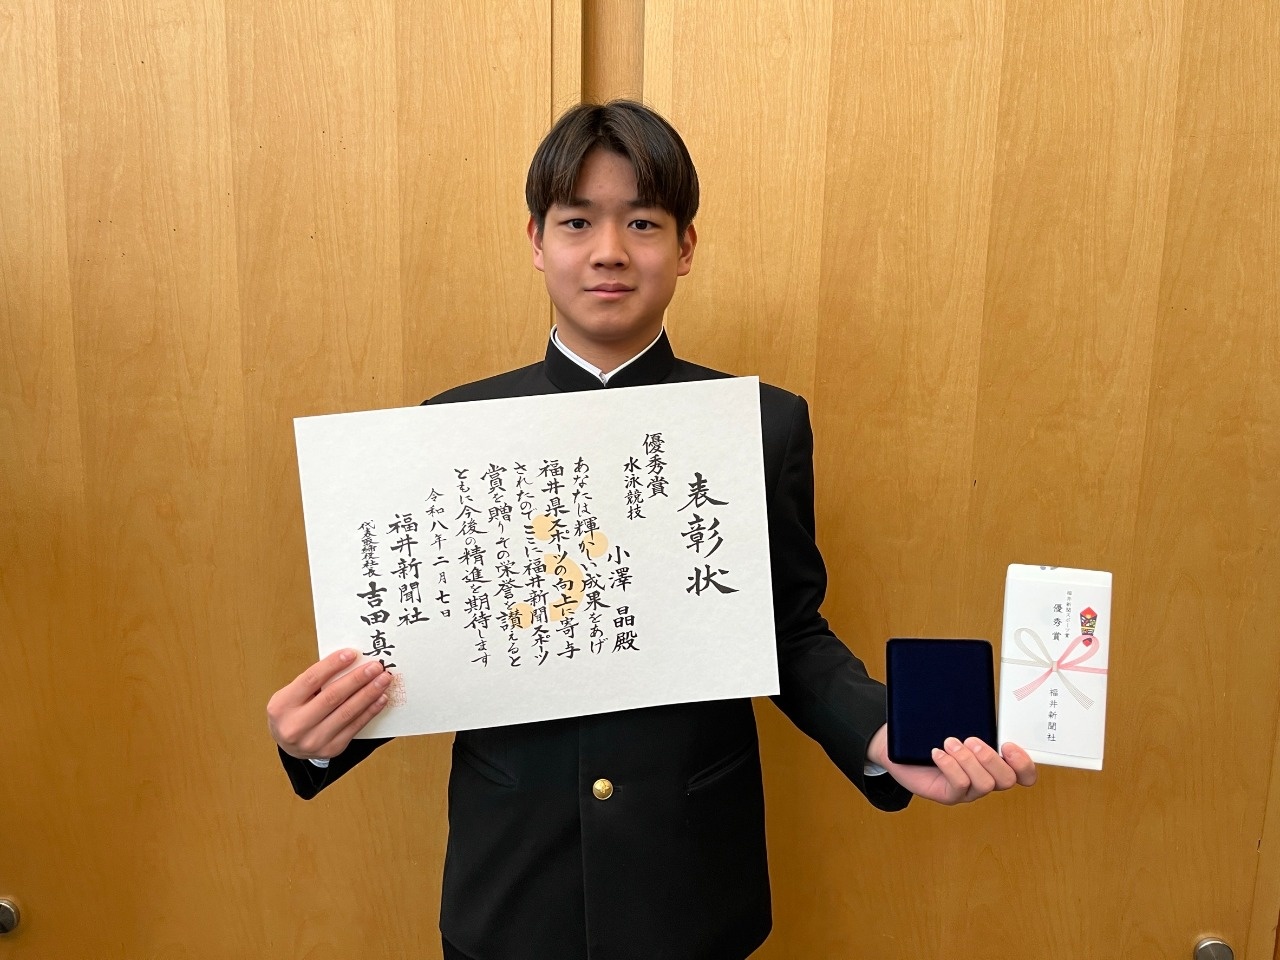 表彰状
優秀賞
水泳競技
小澤 晶殿
あなたは輝かしい成果をあげ
福井県スポーツの向上に寄与
されたのでここに福井新聞スポーツ
賞を贈りその栄誉を讃えると
ともに今後の精進を期待します
令和八年二月七日
福井新聞社
代表取締役社長 吉田真
福井新聞スポーツ賞
優秀賞
福井新聞社